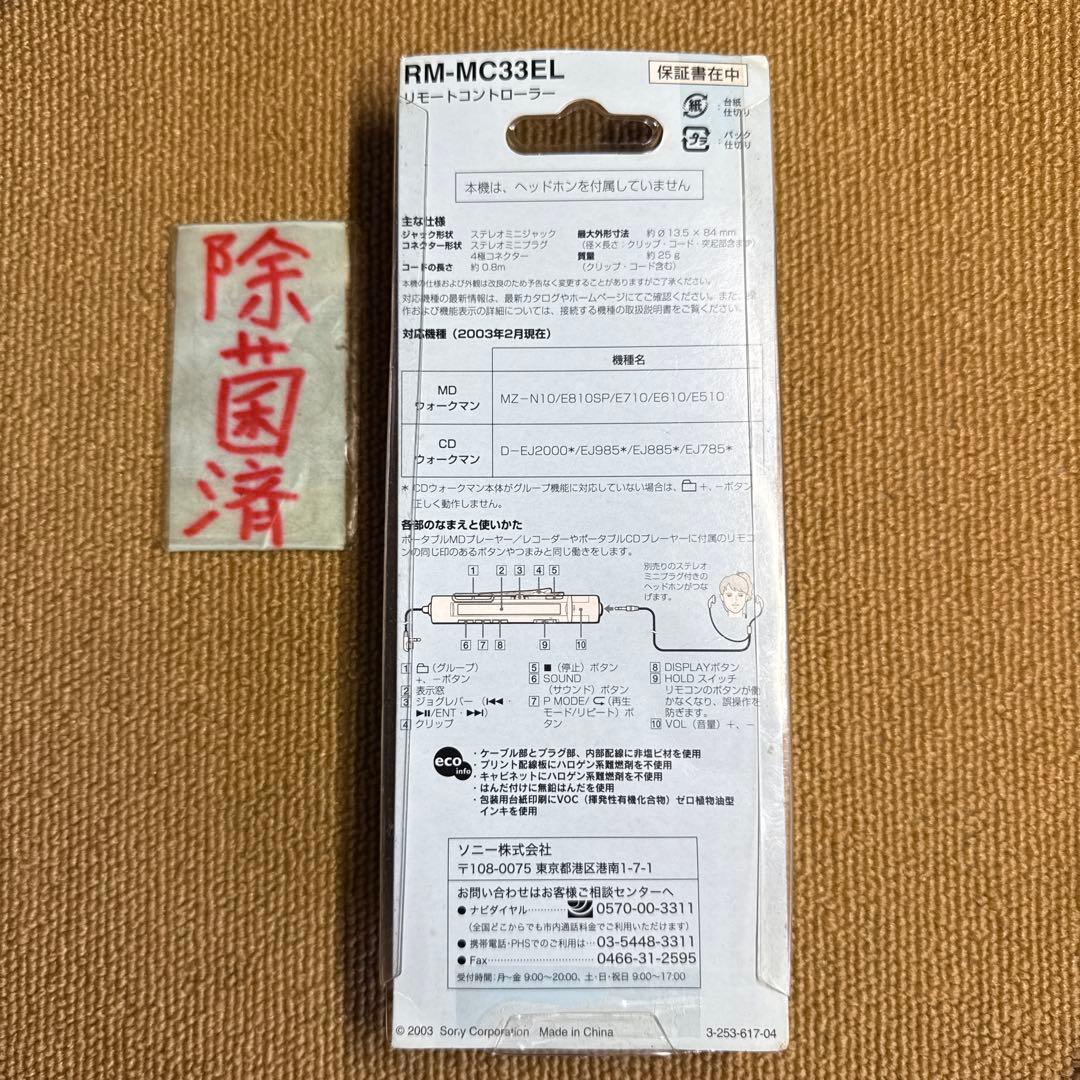 除菌済
RM-MC33EL
リモートコントローラー
保証書在中
紙
：台紙
仕切り
プラ
：パック
仕切り
本機は、ヘッドホンを付属していません
主な仕様
ジャック形状 ステレオミニジャック
コネクター形状 ステレオミニプラグ
4極コネクター
コードの長さ 約 0.8m
最大外形寸法 約 Ø 13.5 × 84 mm
（径×長さ：クリップ・コード・突起部含まず）
質量 約 25 g
（クリップ・コード含む）
本機の仕様および外観は改良のため予告なく変更することがありますがご了承ください。
対応機種の最新情報は、最新カタログやホームページにてご確認ください。また、操
作および機能表示の詳細については、接続する機種の取扱説明書をご覧ください。
対応機種（2003年2月現在）
機種名
MD
ウォークマン
MZ－N10/E810SP/E710/E610/E510
CD
ウォークマン
D－EJ2000*/EJ985*/EJ885*/EJ785*
* CDウォークマン本体がグループ機能に対応していない場合は、 +、－ボタン
正しく動作しません。
各部のなまえと使いかた
ポータブルMDプレーヤー／レコーダーやポータブルCDプレーヤーに付属のリモコ
ンの同じ印のあるボタンやつまみと同じ働きをします。
別売りのステレオ
ミニプラグ付きの
ヘッドホンがつな
げます。
1 2 3 4 5
6 7 8 9 10
1 （グループ）
+、－ボタン
2 表示窓
3 ジョグレバー（⏮・
▶⏸/ENT・⏭）
4 クリップ
5 ■（停止）ボタン
6 SOUND
（サウンド）ボタン
7 P MODE/ （再生
モード/リピート）ボ
タン
8 DISPLAYボタン
9 HOLD スイッチ
リモコンのボタンが働
かなくなり、誤操作を
防ぎます。
10 VOL（音量）+、－
eco info
・ケーブル部とプラグ部、内部配線に非塩ビ材を使用
・プリント配線板にハロゲン系難燃剤を不使用
・キャビネットにハロゲン系難燃剤を不使用
・はんだ付けに無鉛はんだを使用
・包装用台紙印刷にVOC（揮発性有機化合物）ゼロ植物油型
インキを使用
ソニー株式会社
〒108-0075 東京都港区港南1-7-1
お問い合わせはお客様ご相談センターへ
● ナビダイヤル············ 0570-00-3311
（全国どこからでも市内通話料金でご利用いただけます）
● 携帯電話・PHSでのご利用は··· 03-5448-3311
● Fax······················· 0466-31-2595
受付時間：月～金 9:00～20:00、土・日・祝日 9:00～17:00
© 2003 Sony Corporation Made in China
3-253-617-04